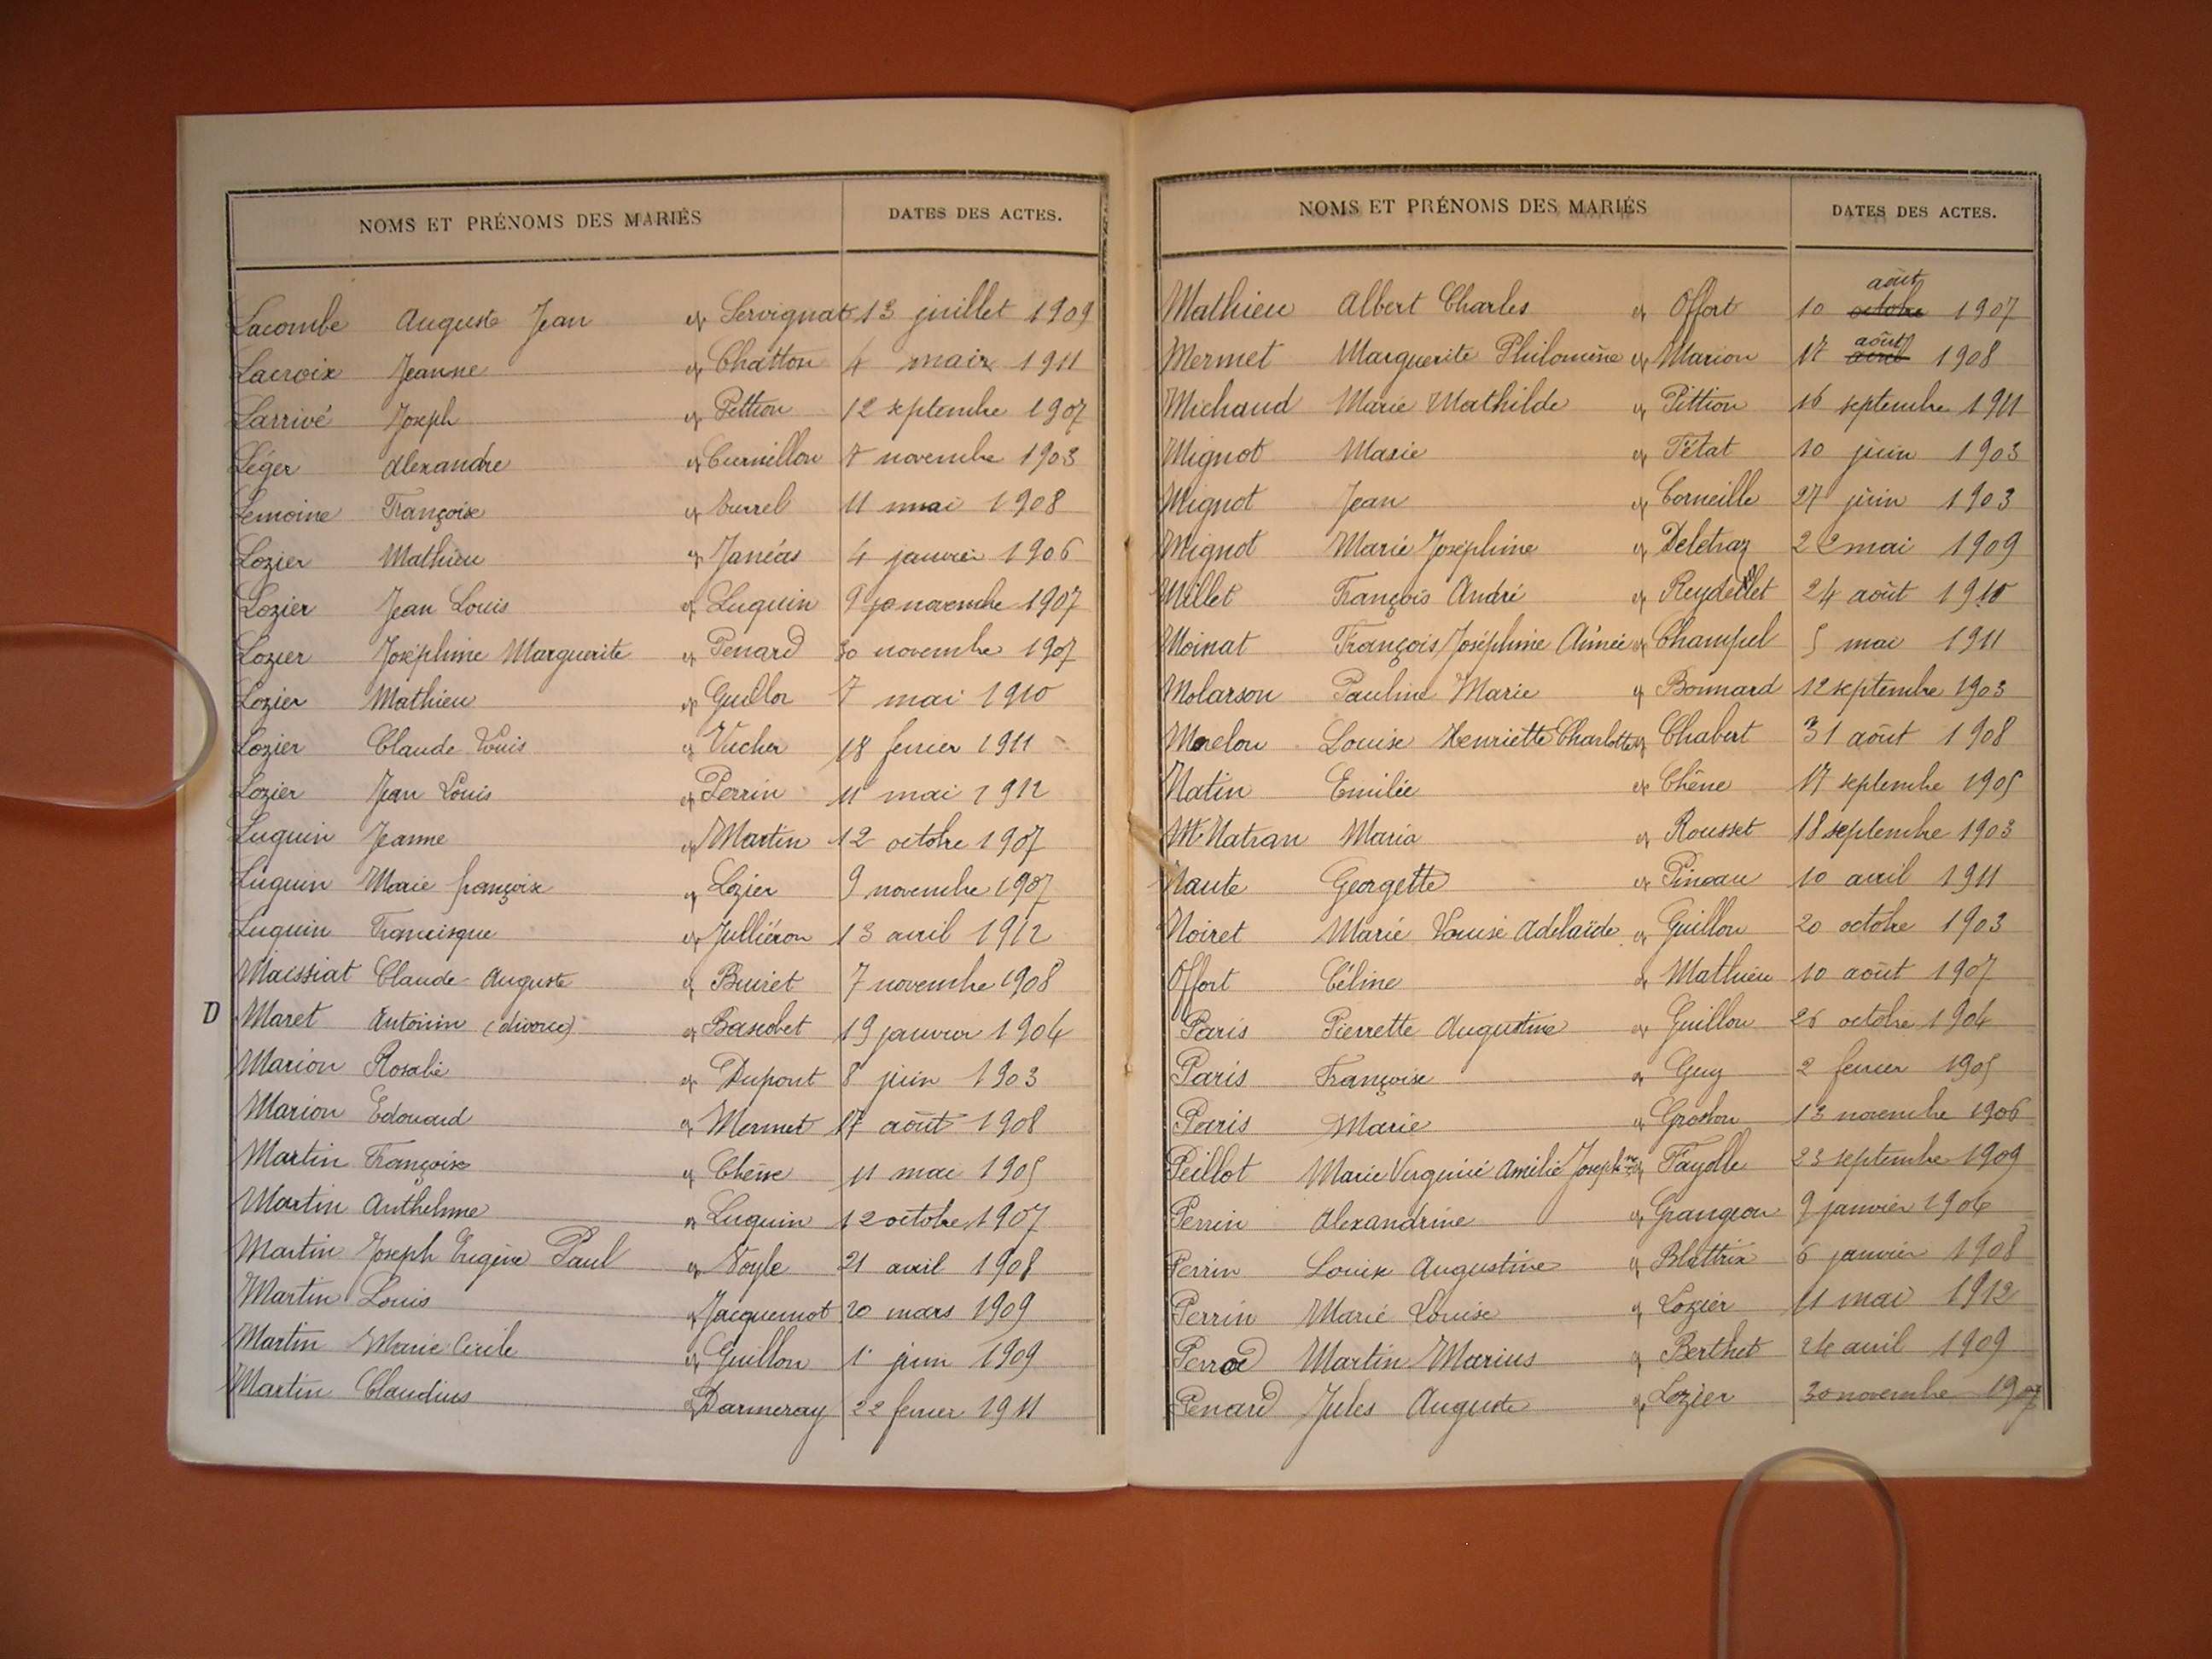 NOMS ET PRÉNOMS DES MARIÉS DATES DES ACTES.
Lacombe Auguste Jean et Servignat 13 juillet 1909
Lacroix Jeanne et Chatton 4 mars 1911
Larrivé Joseph et Pittion 12 septembre 1907
Léger Alexandre et Curnillon 7 novembre 1903
Lemoine Françoise et Burrel 11 mai 1908
Lozier Mathieu et Janéas 4 janvier 1906
Lozier Jean Louis et Luguin 9 novembre 1907
Lozier Joséphine Marguerite et Penard 30 novembre 1907
Lozier Mathieu et Guillon 7 mai 1910
Lozier Claude Louis et Vucher 18 fevrier 1911
Lozier Jean Louis et Perrin 11 mai 1912
Luguin Jeanne et Martin 12 octobre 1907
Luguin Marie françoise et Lozier 9 novembre 1907
Luguin Francisque et Julliéron 13 avril 1912
Maissiat Claude-Auguste et Buiret 7 novembre 1908
D Maret Antonin (divorce) et Bascobet 19 janvier 1904
Marion Rosalie et Dupont 8 juin 1903
Marion Edouard et Mermet 17 août 1908
Martin Françoise et Chêne 11 mai 1905
Martin Anthelme et Luguin 12 octobre 1907
Martin Joseph Eugène Paul et Noyle 21 avril 1908
Martin Louis et Jacquemot 20 mars 1909
Martin Marie Cécile et Guillon 1er juin 1909
Martin Claudius et Darmeray 22 fevrier 1911
NOMS ET PRÉNOMS DES MARIÉS DATES DES ACTES.
août
Mathieu Albert Charles et Offort 10 octobre 1907
août
Mermet Marguerite Philomène et Marion 17 avril 1908
Michaud Marie Mathilde et Pittion 16 septembre 1911
Mignot Marie et Tétat 10 juin 1903
Mignot Jean et Corneille 27 juin 1903
Mignot Marie Joséphine et Deletraz 22 mai 1909
Millet François André et Reydellet 24 août 1910
Moinat François Joséphine Aimée et Champel 5 mai 1911
Molarson Pauline Marie et Bonnard 12 septembre 1903
Morelon Louise Henriette Charlotte et Chabert 31 août 1908
Natin Emilie et Chêne 17 septembre 1905
Natran Maria et Rousset 18 septembre 1903
Naute Georgette et Pineau 10 avril 1911
Noiret Marie Louise Adelaïde et Guillon 20 octobre 1903
Offort Céline et Mathieu 10 août 1907
Paris Pierrette Augustine et Guillon 26 octobre 1904
Paris Françoise et Guy 2 fevrier 1905
Paris Marie et Grosbon 13 novembre 1906
Peillot Marie Virginie Amélie Josephne et Fayolle 23 septembre 1909
Perrin Alexandrine et Grangeon 9 janvier 1906
Perrin Louise Augustine et Blattrix 6 janvier 1908
Perrin Marie Louise et Lozier 11 mai 1912
Perrod Martin Marius et Berthet 24 avril 1909
Penard Jules Auguste et Lozier 30 novembre 1907